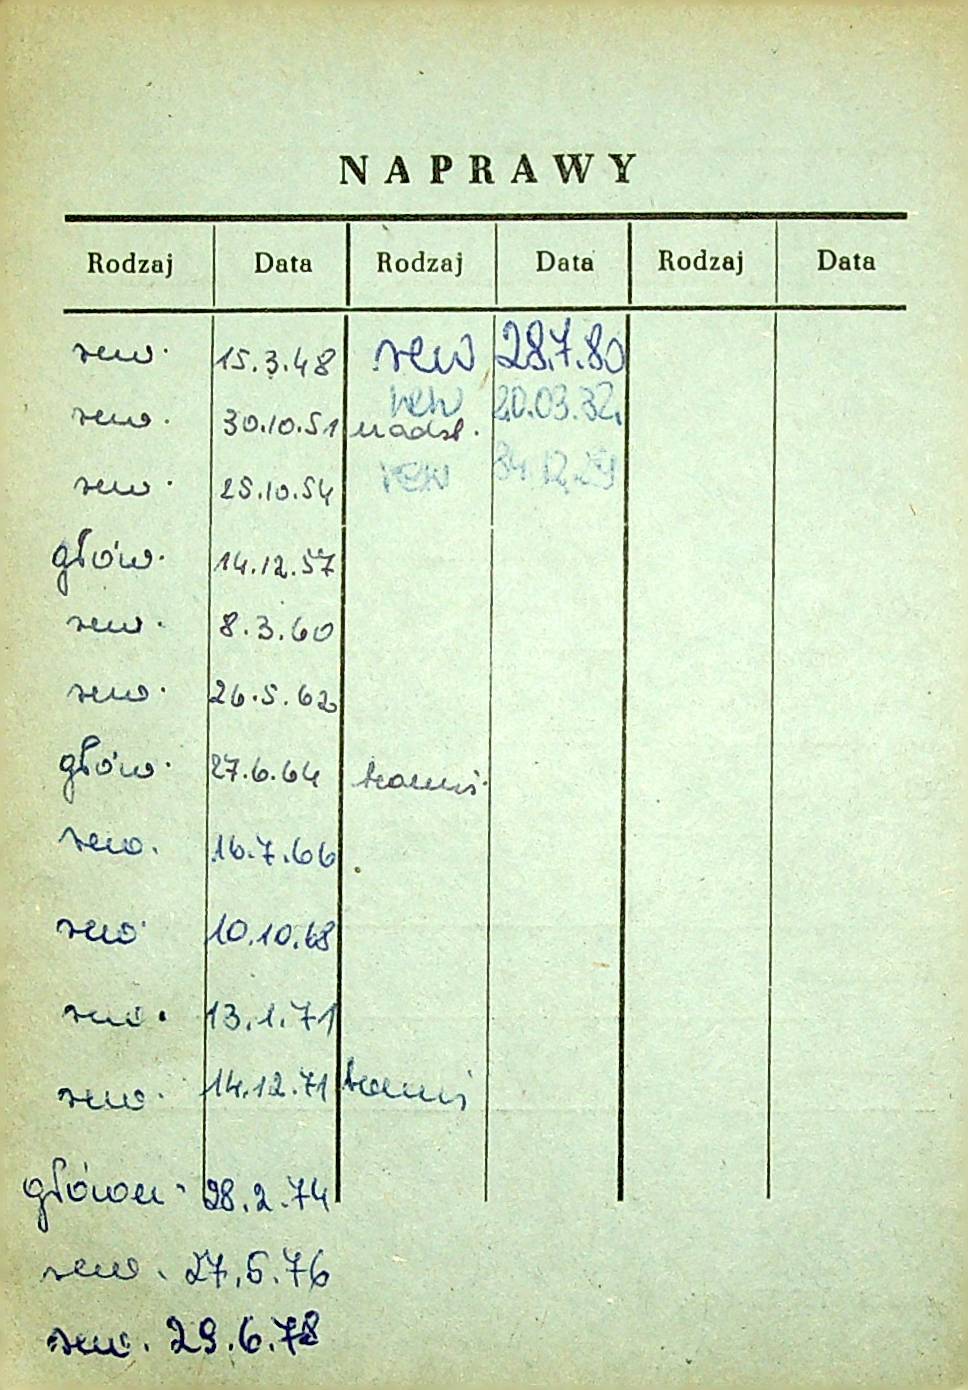 NAPRAWY
Rodzaj Data Rodzaj Data Rodzaj Data
rew. 15.3.48 rew 28.7.80
rew 20.03.82.
rew. 30.10.51 nadst.
rew
rew. 25.10.54
głów. 14.12.57
rew. 8.3.60
rew. 26.5.62
głów. 27.6.64
rew. 16.7.66
rew. 10.10.68
rew. 13.1.71
rew. 14.12.71
główn. 28.2.74
rew. 27.5.76
rew. 29.6.78